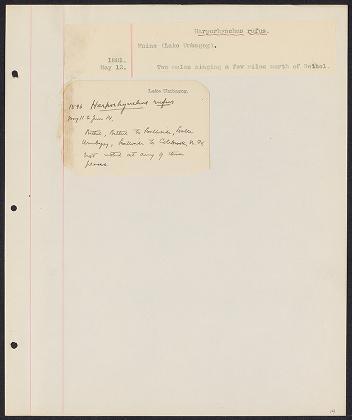 Harporhynchus rufus.
Maine (Lake Umbagog).
1881.
May 12. Two males singing a few miles north of Bethel.
Lake Umbagog.
1896 Harporhynchus rufus
May 11 to June 14.
Bethel, Bethel to Lakeside, Lake
Umbagog, Lakeside to Colebrook, N.H.
Not noted at any of these
places